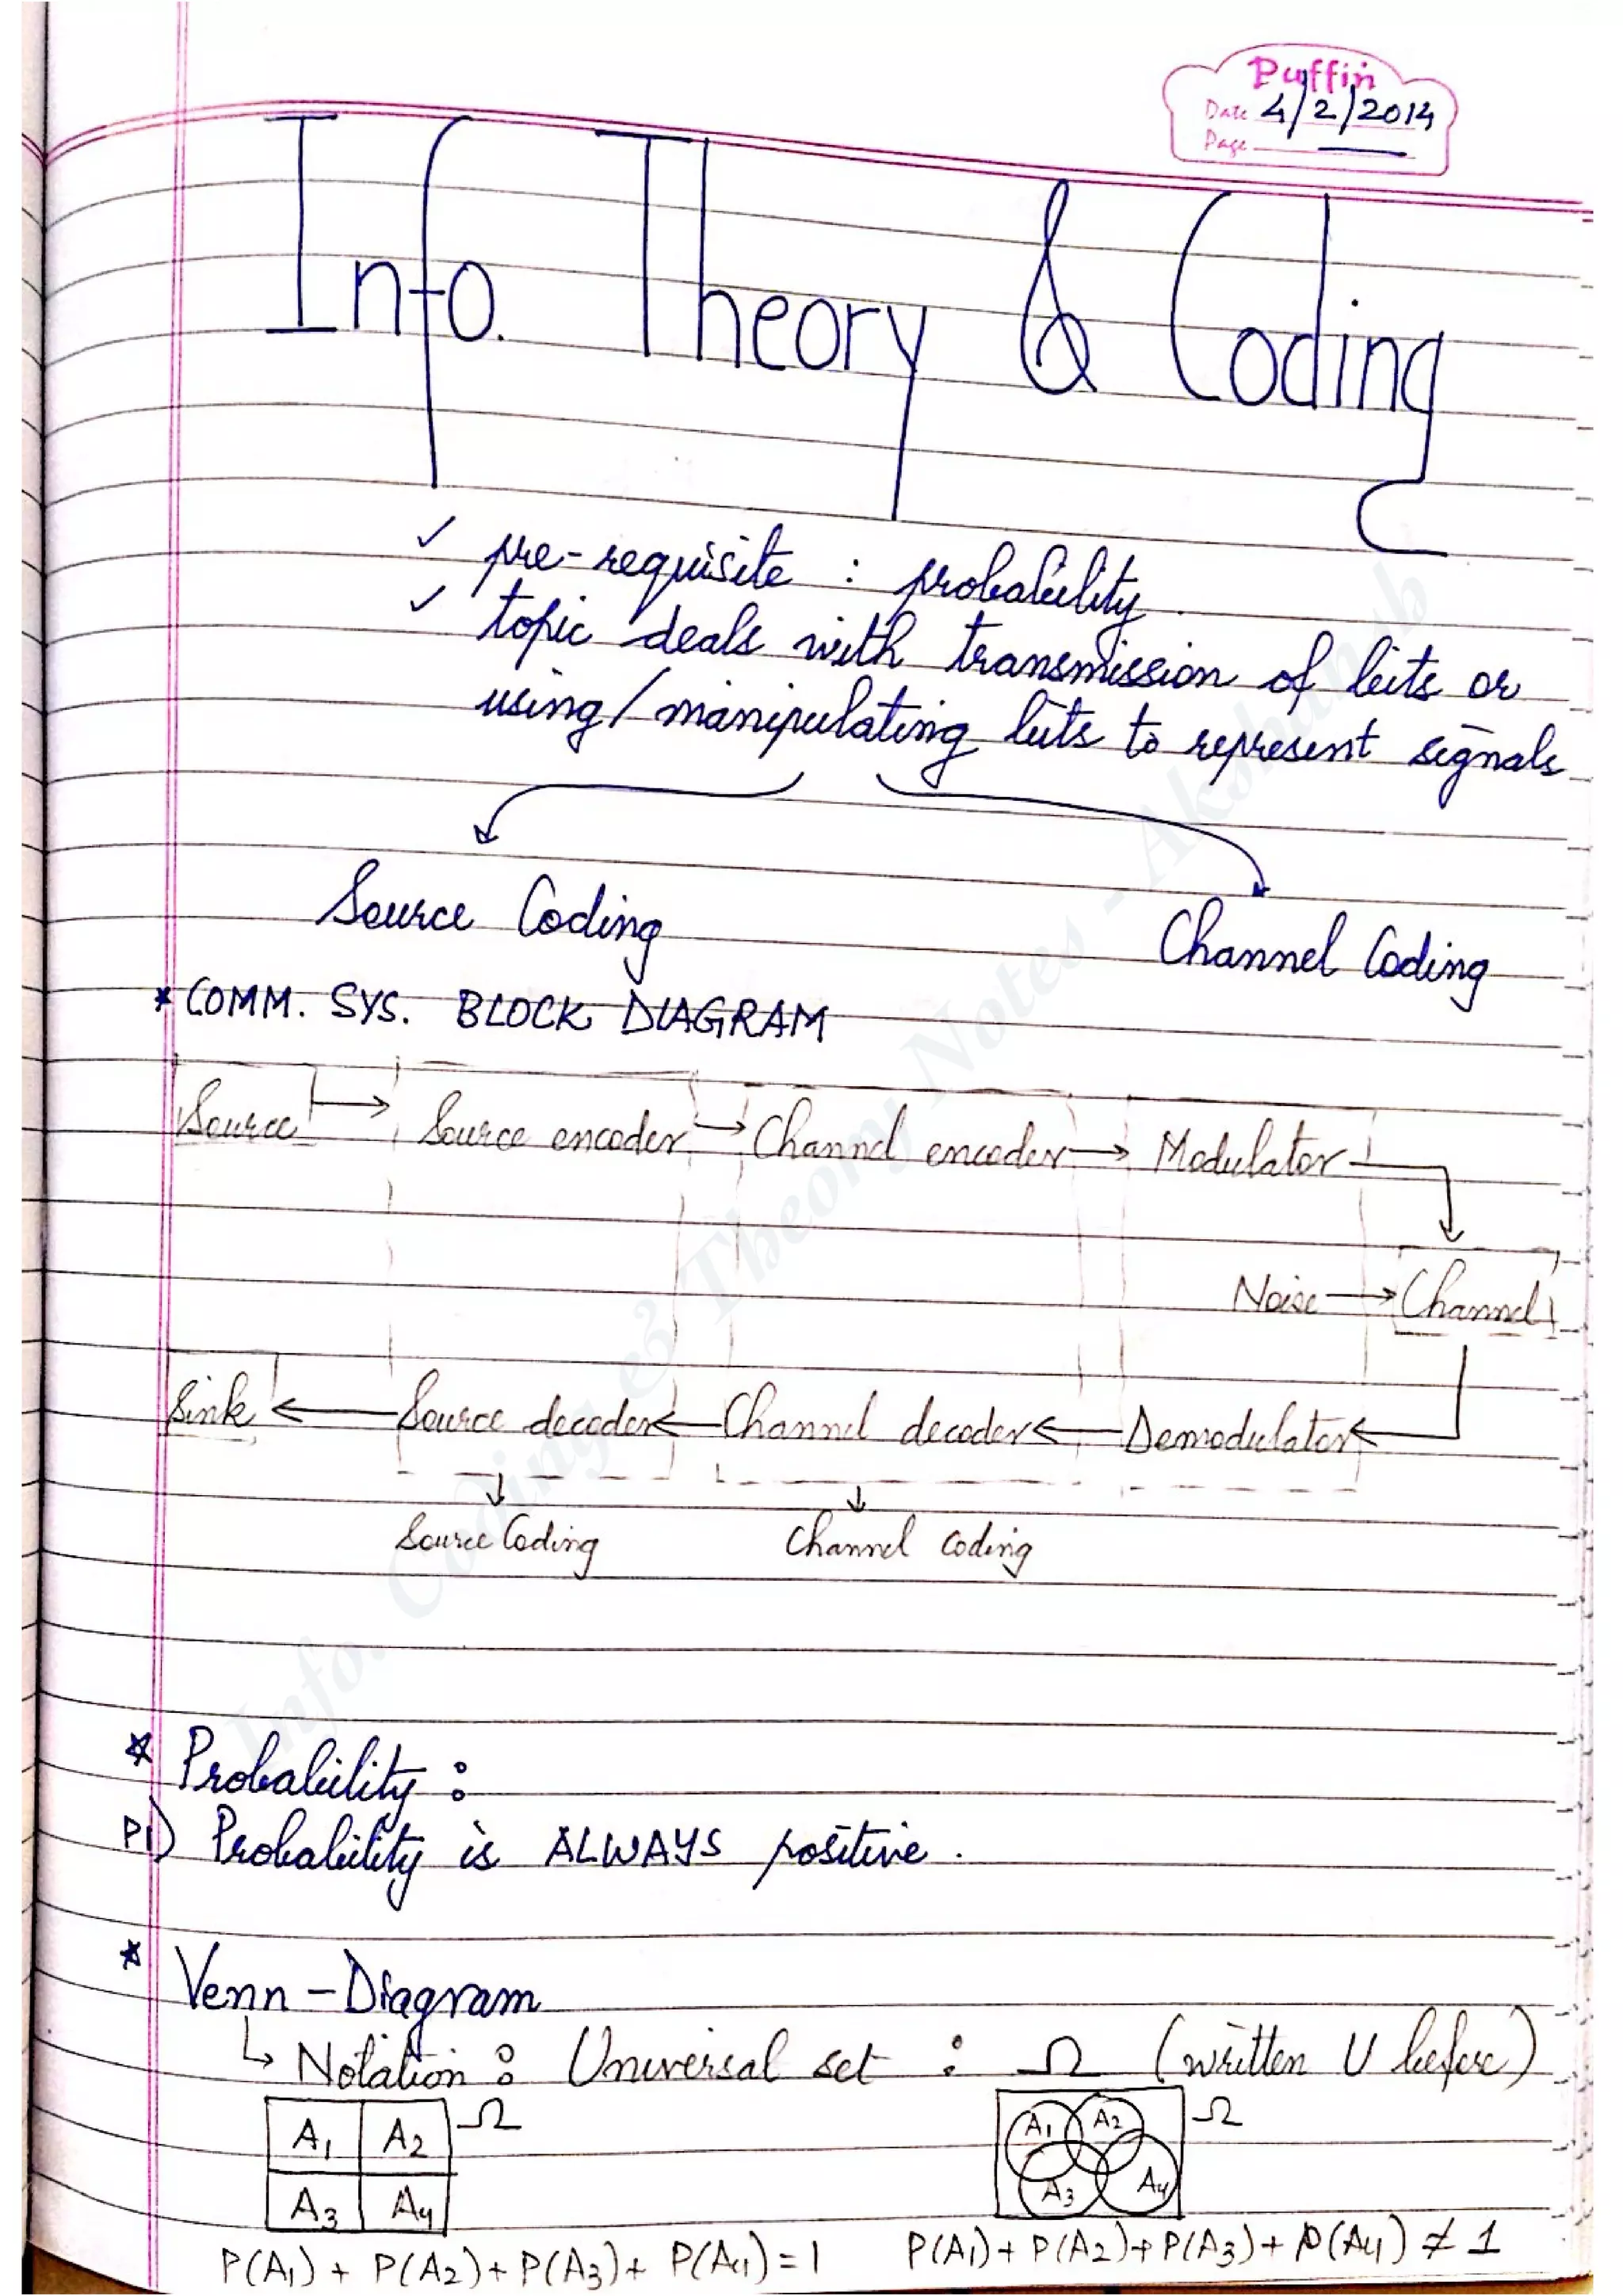 Puffin
Date 4/2/2014
Page
Info. Theory & Coding
✓ pre-requisite : probability.
✓ topic deals with transmission of bits or
using/manipulating bits to represent signals
Source Coding
Channel Coding
* COMM. SYS. BLOCK DIAGRAM
Source → Source encoder → Channel encoder → Modulator
Noise → Channel
Sink ← Source decoder ← Channel decoder ← Demodulator
Source Coding Channel coding
* Probability :
P1) Probability is ALWAYS positive.
* Venn-Diagram
↳ Notation : Universal set : Ω (written U before)
A1 A2 Ω
A3 A4
A1 A2 Ω
A3 A4
P(A1) + P(A2) + P(A3) + P(A4) = 1
P(A1) + P(A2) + P(A3) + P(A4) ≠ 1
Info. Coding & Theory Notes - Akshansh